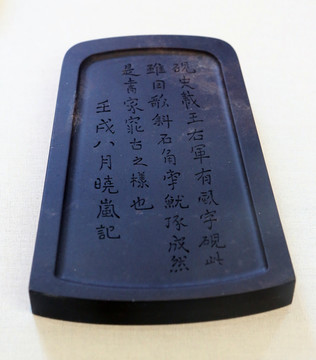 硯史載王右軍有風字硯此
雖因欹斜石角牽就琢成然
是家之樣也
壬戌八月曉嵐記